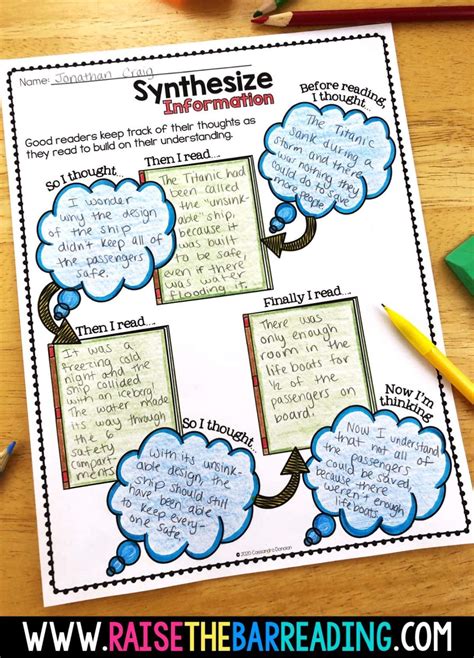 Name: Jonathan Craig
Synthesize
Information
Good readers keep track of their thoughts as
they read to build on their understanding.
Before reading,
I thought...
The Titanic
sank during a
storm and there
was nothing they
could do to save
more people
Then I read...
The Titanic had
been called
the "unsink-
able" ship,
because it
was built
to be safe,
even if there
was water
flooding it.
So I thought...
I wonder
why the design
of the ship
didn't keep all of
the passengers
safe.
Then I read...
It was a
freezing cold
night and the
ship collided
with an iceberg.
The water made
its way through
the 6
safety
compart-
ments
So I thought...
With its unsink-
able design, the
ship should still
have been able
to keep every-
one safe.
Finally I read...
There was
only enough
room in the
lifeboats for
1/2 of the
passengers on
board.
Now I'm
thinking
Now I understand
that not all of
the passengers
could be saved,
because there
weren't enough
lifeboats
© 2020 Cassandra Donlon
WWW.RAISETHEBARREADING.COM